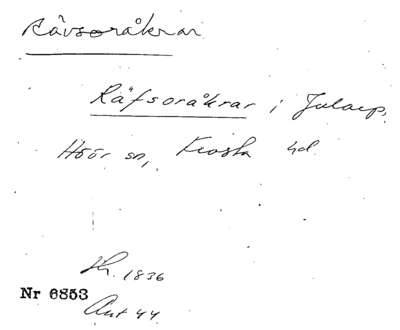 Rävsoråkrar
Räfsoråkrar i Jularp,
Höör sn, Frosta hd
Sk. 1836
Nr 6853
Ant 44